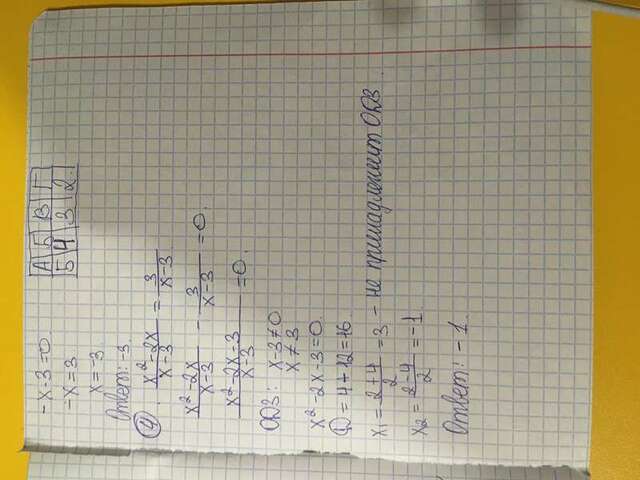 -x-3=0
-x=3
x=-3
Ответ: -3.
А Б В Г
5 4 3 2
④. (x²-2x)/(x-3) = 3/(x-3)
(x²-2x)/(x-3) - 3/(x-3) = 0.
(x²-2x-3)/(x-3) = 0.
ОДЗ: x-3≠0
x≠3
x²-2x-3=0.
D=4+12=16.
x₁=(2+4)/2=3 - не принадлежит ОДЗ.
x₂=(2-4)/2=-1.
Ответ: -1.